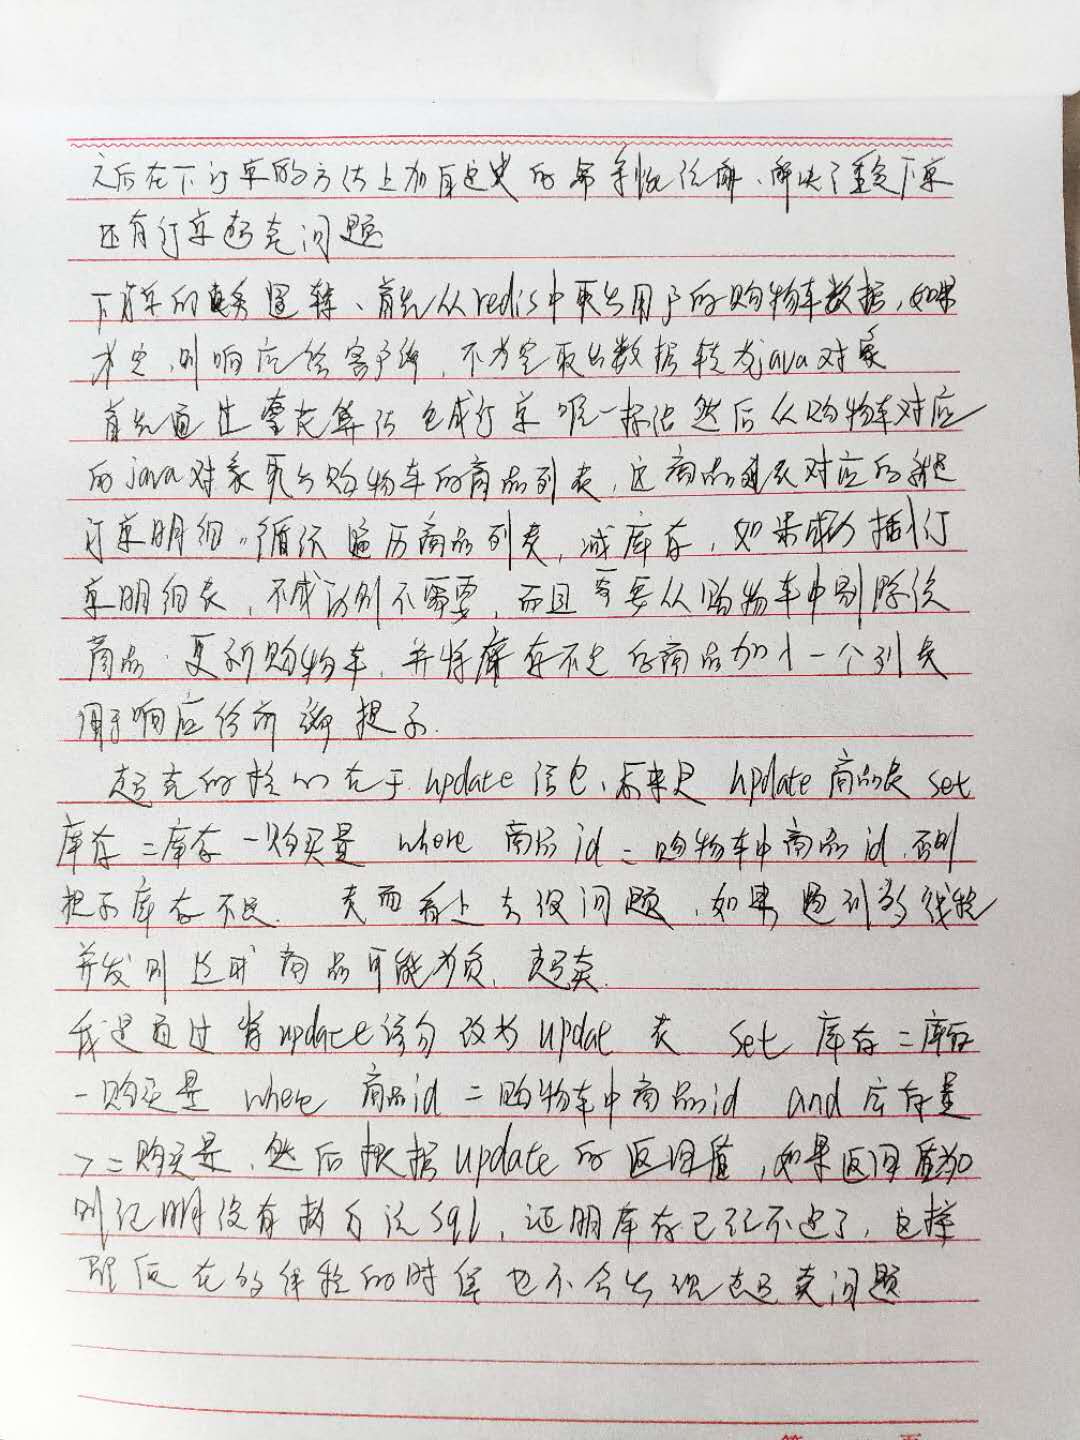 之后在下订单的方法上加自定义的幂等性注解、解决了重复下单
还有订单超卖问题
下订单的业务逻辑、首先从redis中取出用户的购物车数据,如果
为空,则响应给客户端,不为空取出数据转为java对象
首先通过雪花算法生成订单唯一标识然后从购物车对应
的java对象取出购物车的商品列表,这商品列表对应的就是
订单明细。循环遍历商品列表,减库存,如果成功插入订
单明细表,不成功则不需要,而且需要从购物车中删除该
商品.更新购物车,并将库存不足的商品加入一个列表
用于响应给前端提示.
超卖的核心在于update语句、原来是 update 商品表 set
库存=库存-购买量 where 商品id=购物车中商品id,否则
提示库存不足.表面看上去没问题,如果遇到多线程
并发则造成商品可能为负,超卖.
我是通过将update语句改为 update 表 set 库存=库存
-购买量 where 商品id=购物车中商品id and 库存量
>=购买量,然后根据update的返回值,如果返回值为0
则证明没有执行该sql,证明库存已经不足了,这样
即使在多线程的时候也不会出现超卖问题